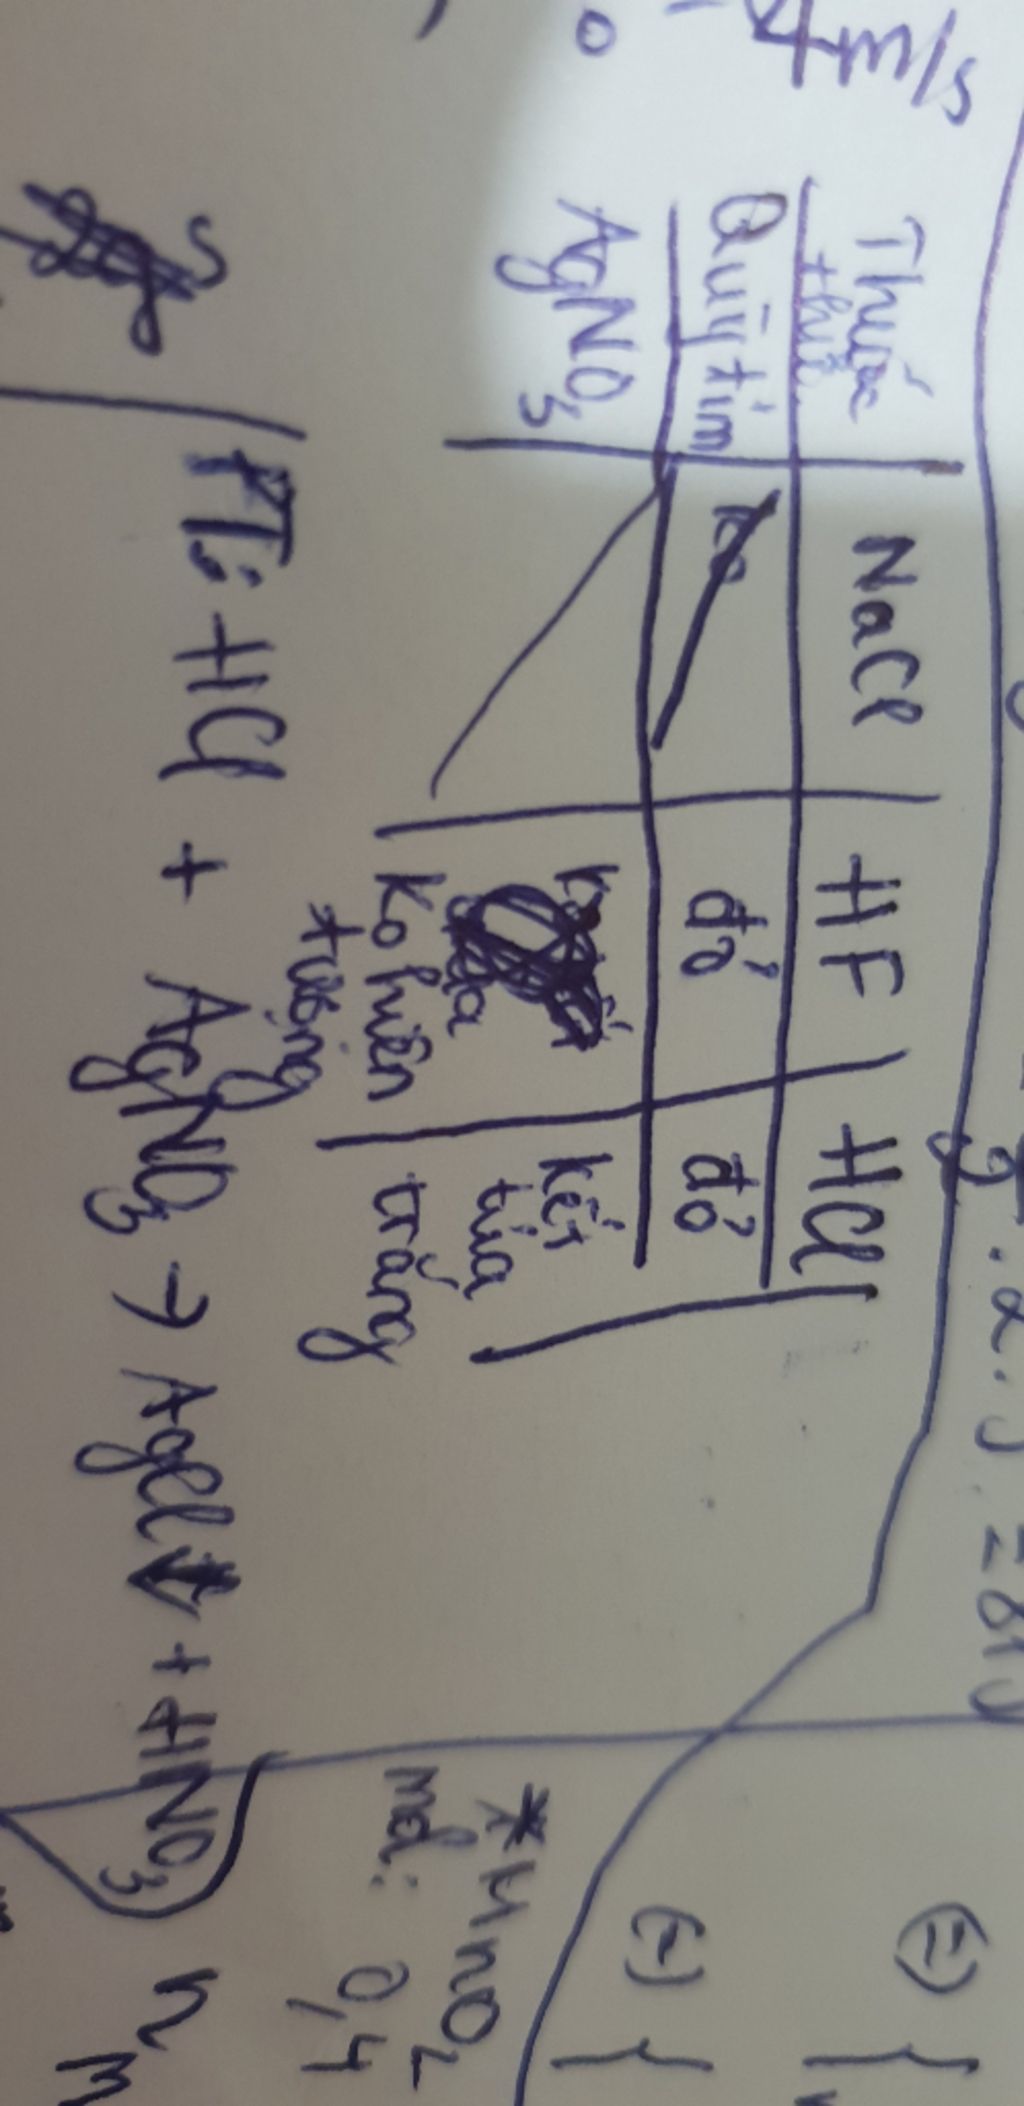 4m/s
Thuốc thử NaCl HF HCl
Quỳ tím đỏ đỏ
AgNO3 ko hiện tượng kết tủa trắng
PT: HCl + AgNO3 → AgCl↓ + HNO3
(=) {
(-) {
*MnO2
mol: 0,4
n